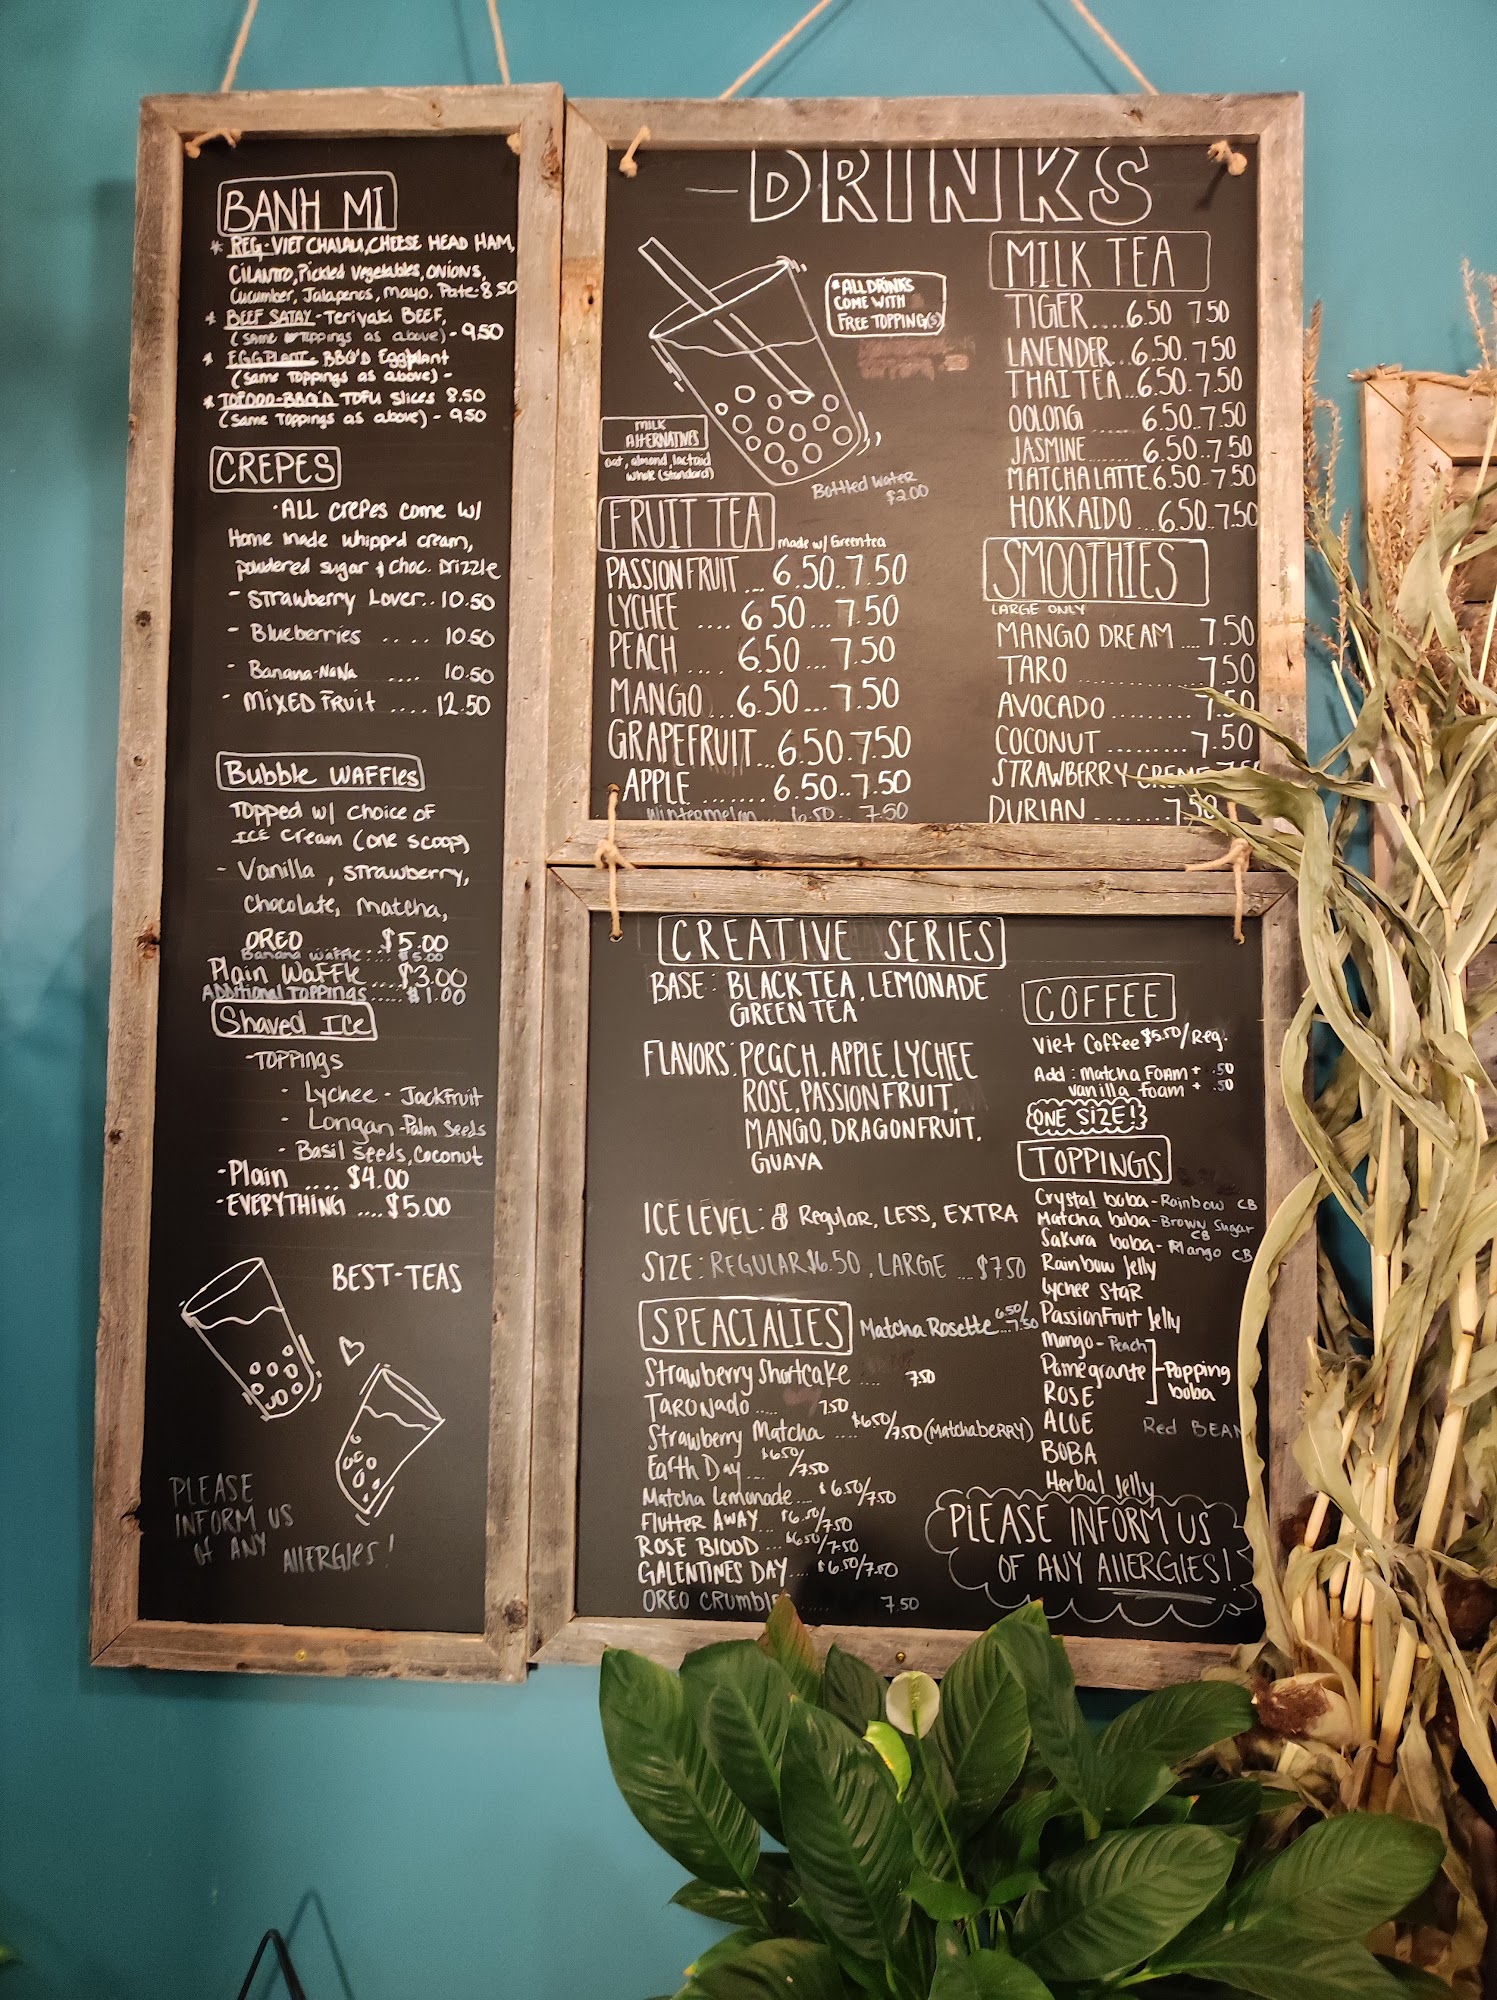 BANH MI
* REG-VIET CHALAU, CHEESE HEAD HAM,
CILANTRO, Pickled Vegetables, ONIONS,
Cucumber, Jalapenos, Mayo. Pate-8.50
* BEEF SATAY-Teriyaki BEEF,
(same toppings as above) - 9.50
* EGGPLANT- BBQ'D Eggplant
(same Toppings as above) -
* BBQ'D TOFU Slices 8.50
(same Toppings as above) - 9.50
CREPES
·ALL crepes come w/
Home made whipped cream,
powdered sugar + choc. Drizzle
- Strawberry Lover.. 10.50
- Blueberries .... 10.50
- Banana-NaNa .... 10.50
- MIXED FRUIT .... 12.50
Bubble WAFFles
TOPPED w/ choice OF
ICE Cream (one scoop)
- Vanilla, Strawberry,
Chocolate, Matcha,
OREO $5.00
Banana Waffle .... $5.00
Plain Waffle ....$3.00
Additional Toppings.....$1.00
Shaved Ice
-TOPPINGS
- Lychee - Jackfruit
- Longan -Palm Seeds
- Basil Seeds, Coconut
-Plain .... $4.00
-EVERYTHING ....$5.00
BEST-TEAS
PLEASE
INFORM US
of ANY AllERGIES!
DRINKS
*ALL DRINKS
COME WITH
FREE TOPPING(S)
MILK
AlTERNATIVES
oat, almond, lactaid
whole (standard)
Bottled Water
$2.00
FRUIT TEA made w/ Green tea
PASSION FRUIT ... 6.50..7.50
LYCHEE .... 6.50...7.50
PEACH .... 6.50...7.50
MANGO ...6.50...7.50
GRAPEFRUIT...6.50.7.50
APPLE .......6.50..7.50
Wintermelon ... 6.50.. 7.50
MILK TEA
TIGER....6.50 7.50
LAVENDER..6.50.7.50
THAI TEA...6.50.7.50
OOLONG 6.50..7.50
JASMINE...... 6.50..7.50
MATCHA LATTE.6.50.7.50
HOKKAIDO ...6.50..7.50
SMOOTHIES
LARGE ONLY
MANGO DREAM ....7.50
TARO ............7.50
AVOCADO......... 7.50
COCONUT .........7.50
STRAWBERRY CREME
DURIAN ........7.50
CREATIVE SERIES
BASE: BLACK TEA, LEMONADE
GREEN TEA
FLAVORS: PEACH, APPLE, LYCHEE
ROSE, PASSION FRUIT,
MANGO, DRAGONFRUIT,
GUAVA
ICE LEVEL: Regular, LESS, EXTRA
SIZE: REGULAR $6.50, LARGE ...$7.50
SPEACIALIES Matcha Rosette...6.50/7.50
Strawberry Shortcake .... 7.50
TARONado ..... 7.50
Strawberry Matcha .... $6.50/7.50 (MatchabeRRY)
Earth Day ... $6.50/7.50
Matcha Lemonade.... $6.50/7.50
FlUTTER AWAY... $6.50/7.50
ROSE BlOOD ...$6.50/7.50
GALENTINES DAY.... $6.50/7.50
OREO CRUMBlE ..... 7.50
COFFEE
Viet Coffee $5.50/Reg.
Add: Matcha FOAM + .50
vanilla foam + .50
ONE SIZE!
TOPPINGS
Crystal boba - Rainbow CB
Matcha boba - Brown Sugar CB
Sakura boba - Mango CB
Rainbow Jelly
lychee STAR
PassionFruit Jelly
mango - Peach
Pomegrante Popping
ROSE boba
ALOE Red BEAN
BOBA
Herbal Jelly
PLEASE INFORM US
OF ANY AllERGIES!